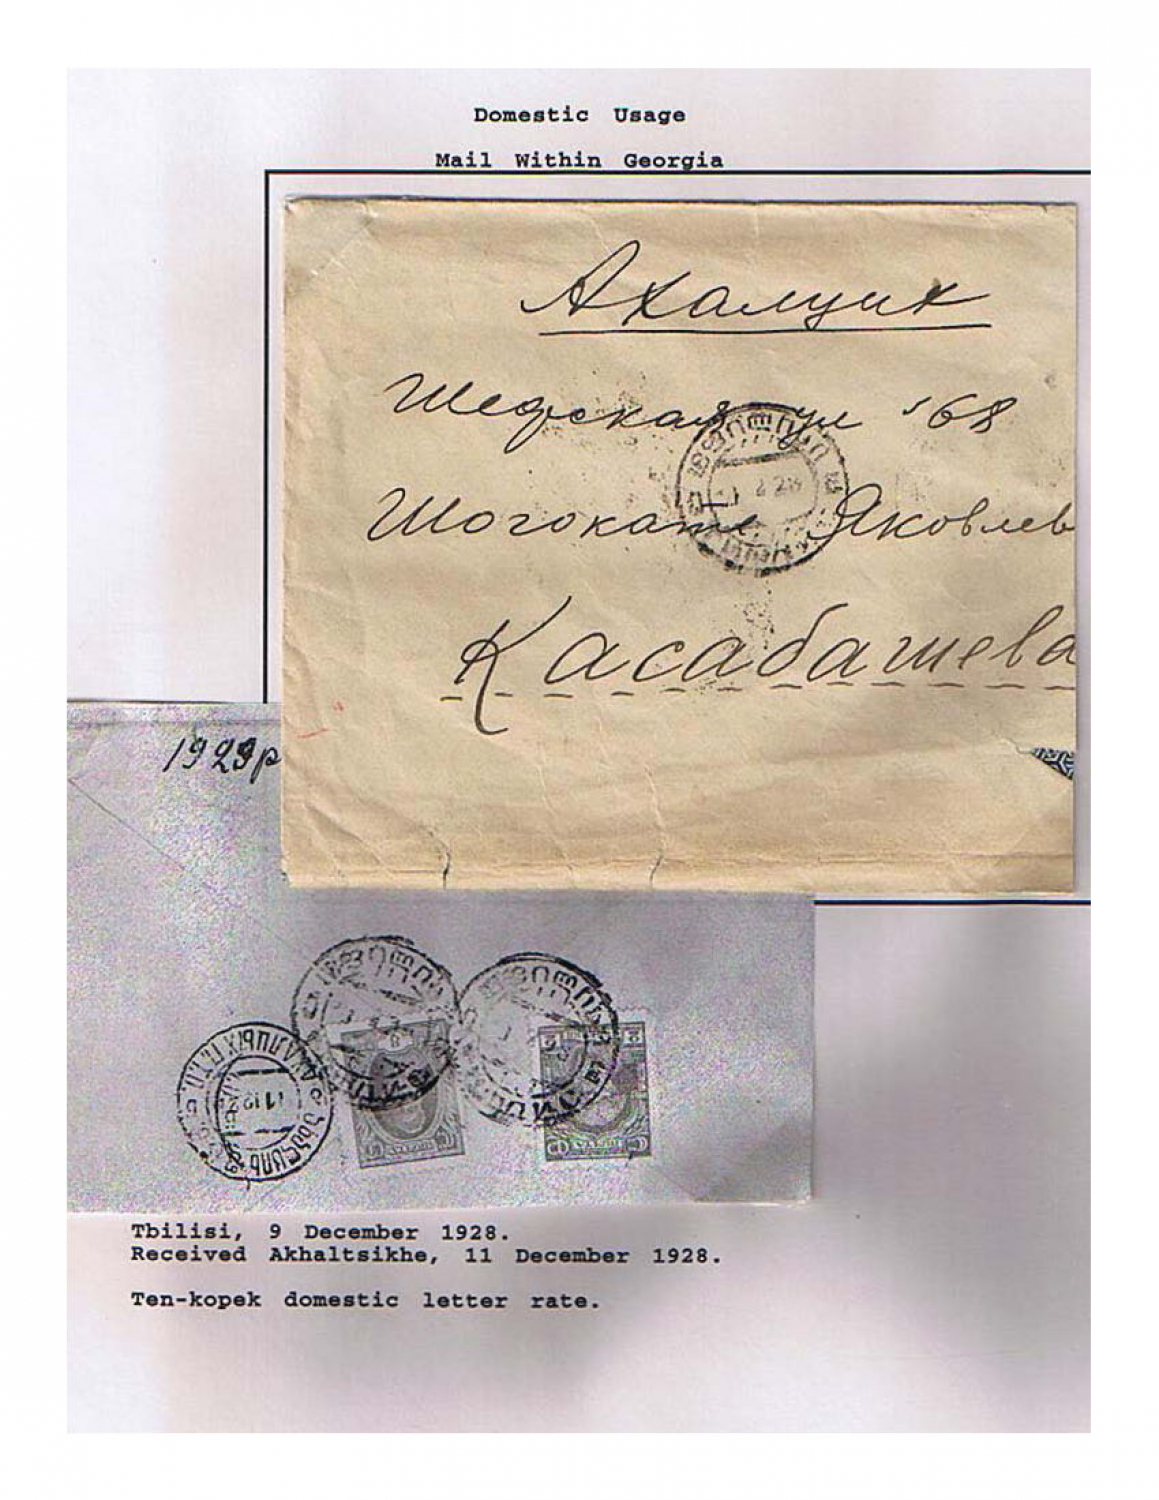 Domestic Usage
Mail Within Georgia
Ахалцих
Шефская ул 68
Яковлев
Касабашева
1929р
Tbilisi, 9 December 1928.
Received Akhaltsikhe, 11 December 1928.
Ten-kopek domestic letter rate.